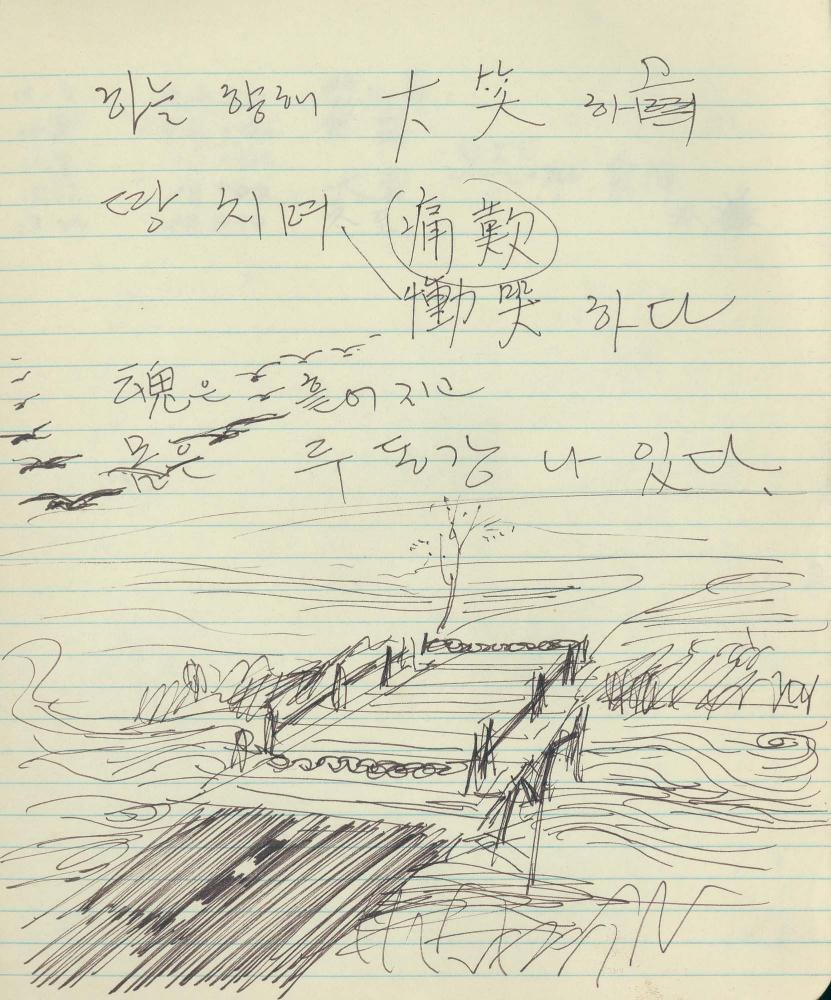 하늘 향해 大笑 하고
땅 치며 痛歎
慟哭 하다
魂은 흩어지고
몸은 두 동강 나 있다.